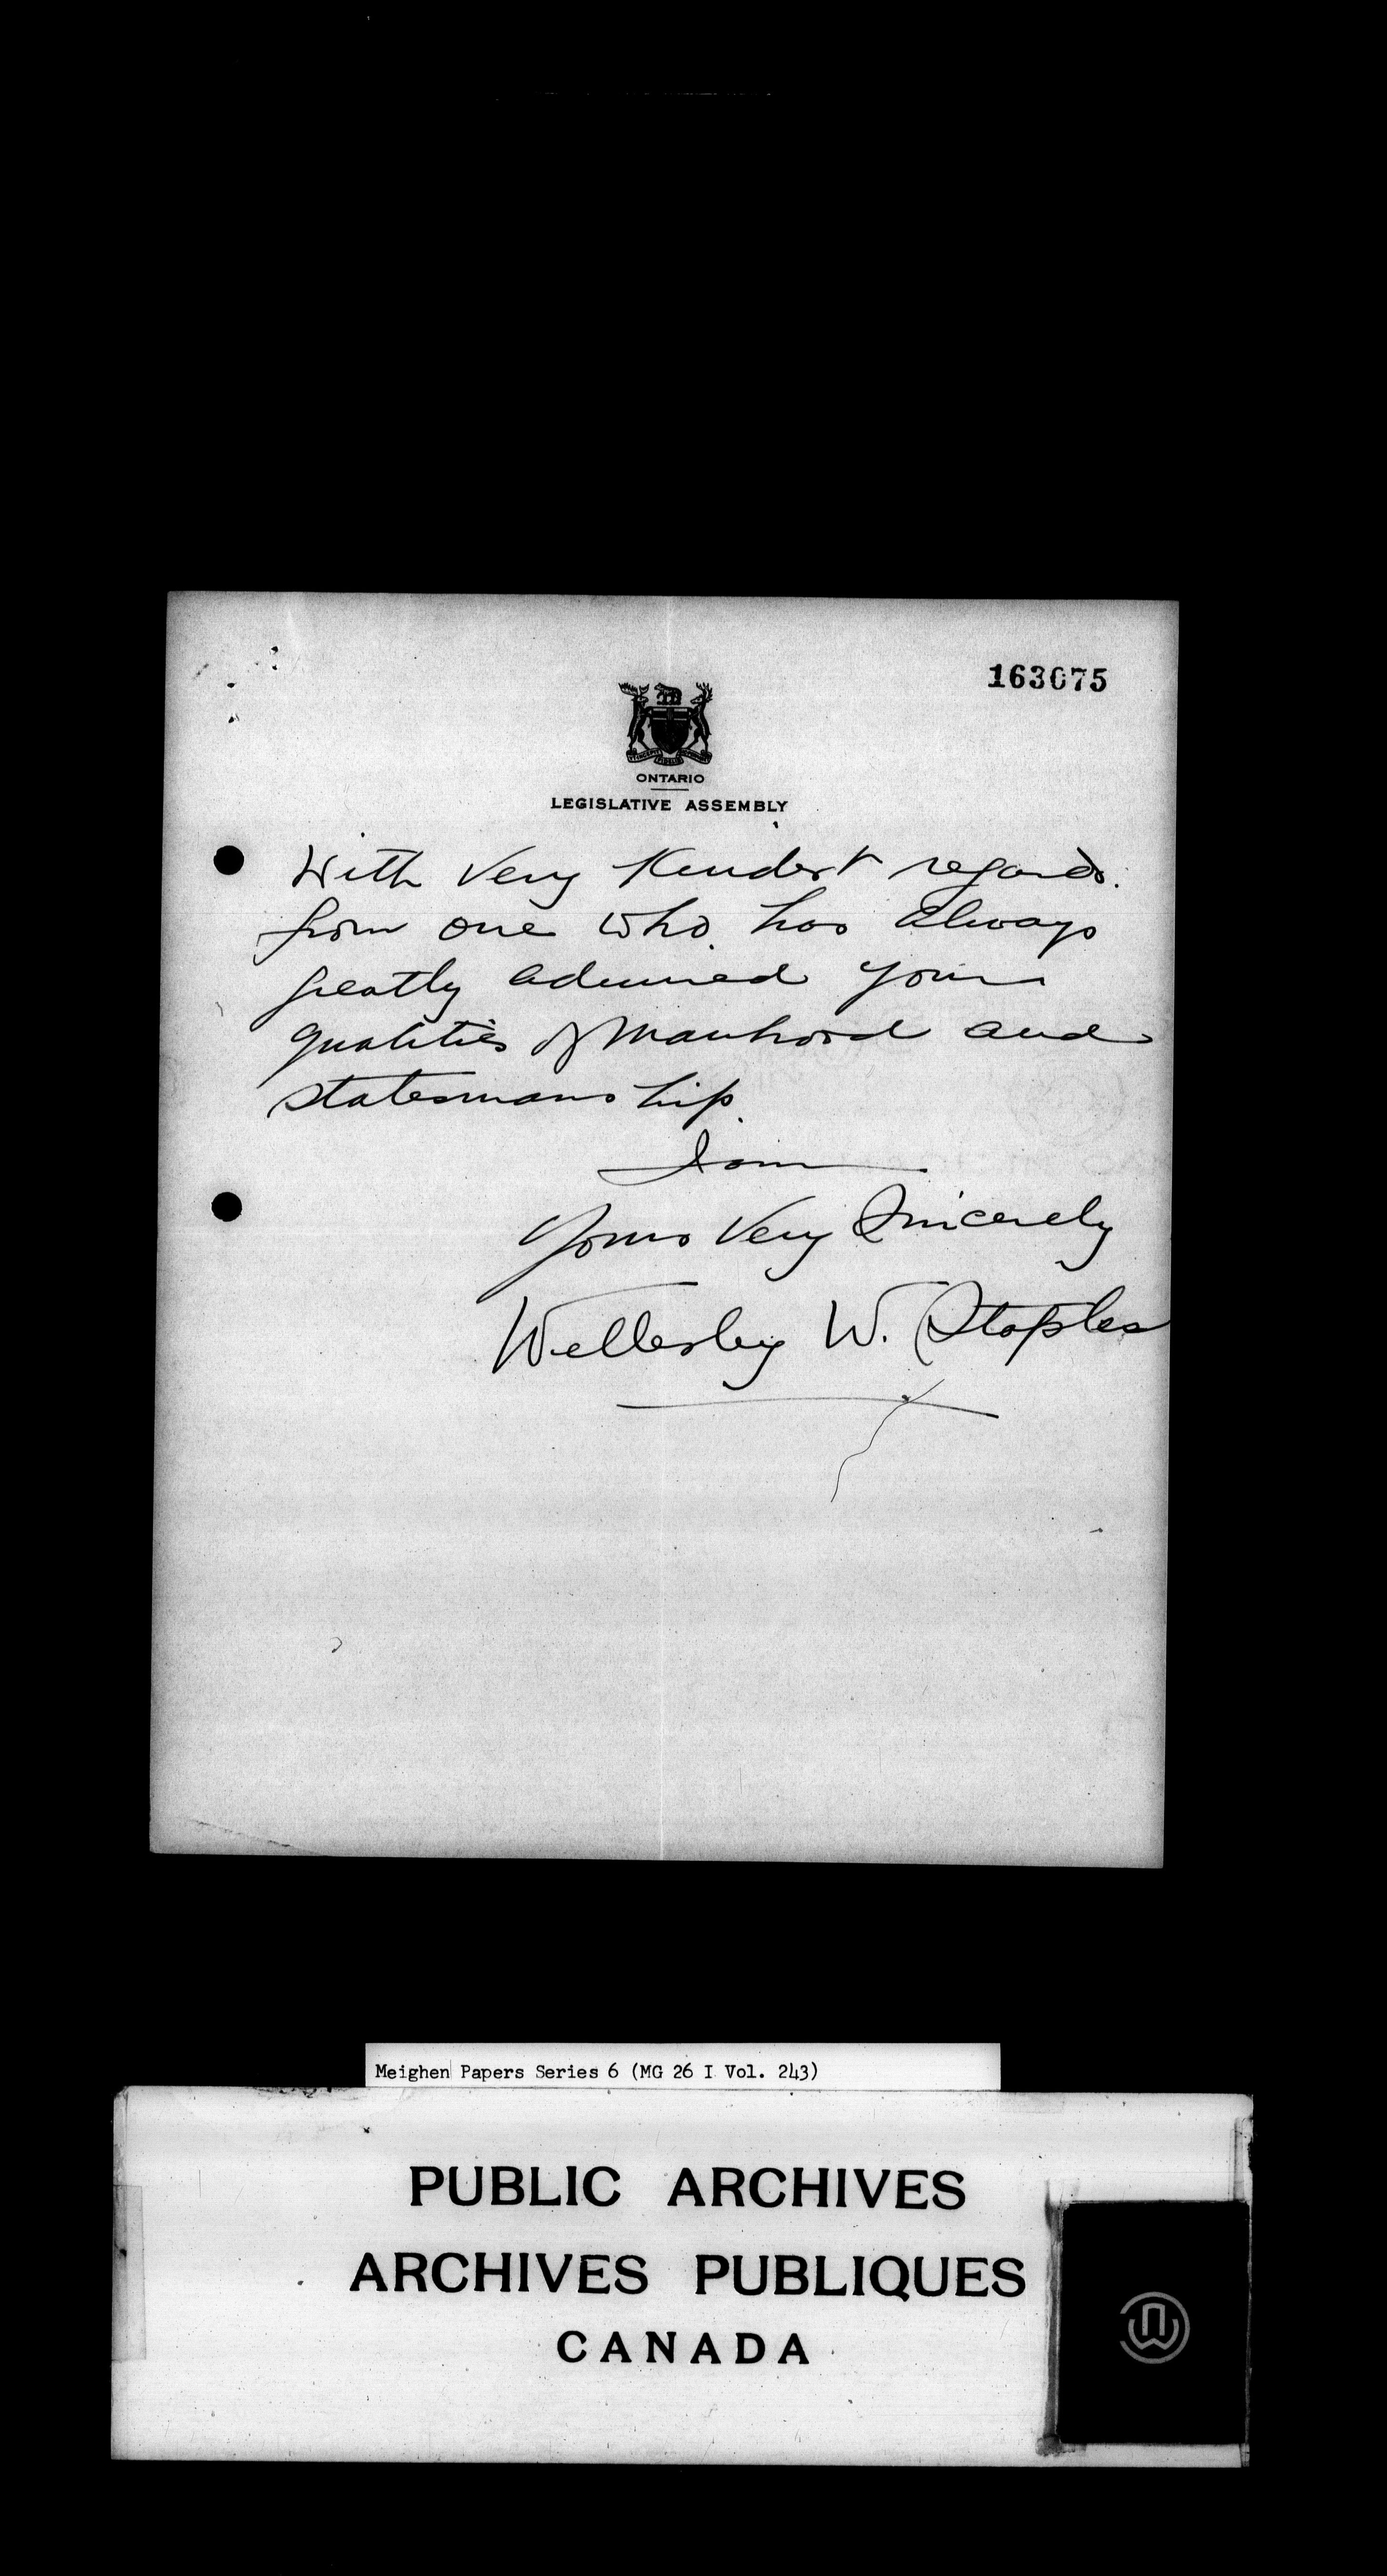 163075
ONTARIO
LEGISLATIVE ASSEMBLY
With Very Kindest regards.
from one who has always
greatly admired your
qualities of manhood and
statesmanship.
I am
Yours Very Sincerely
Wellesley W. Staples
Meighen Papers Series 6 (MG 26 I Vol. 243)
PUBLIC ARCHIVES
ARCHIVES PUBLIQUES
CANADA